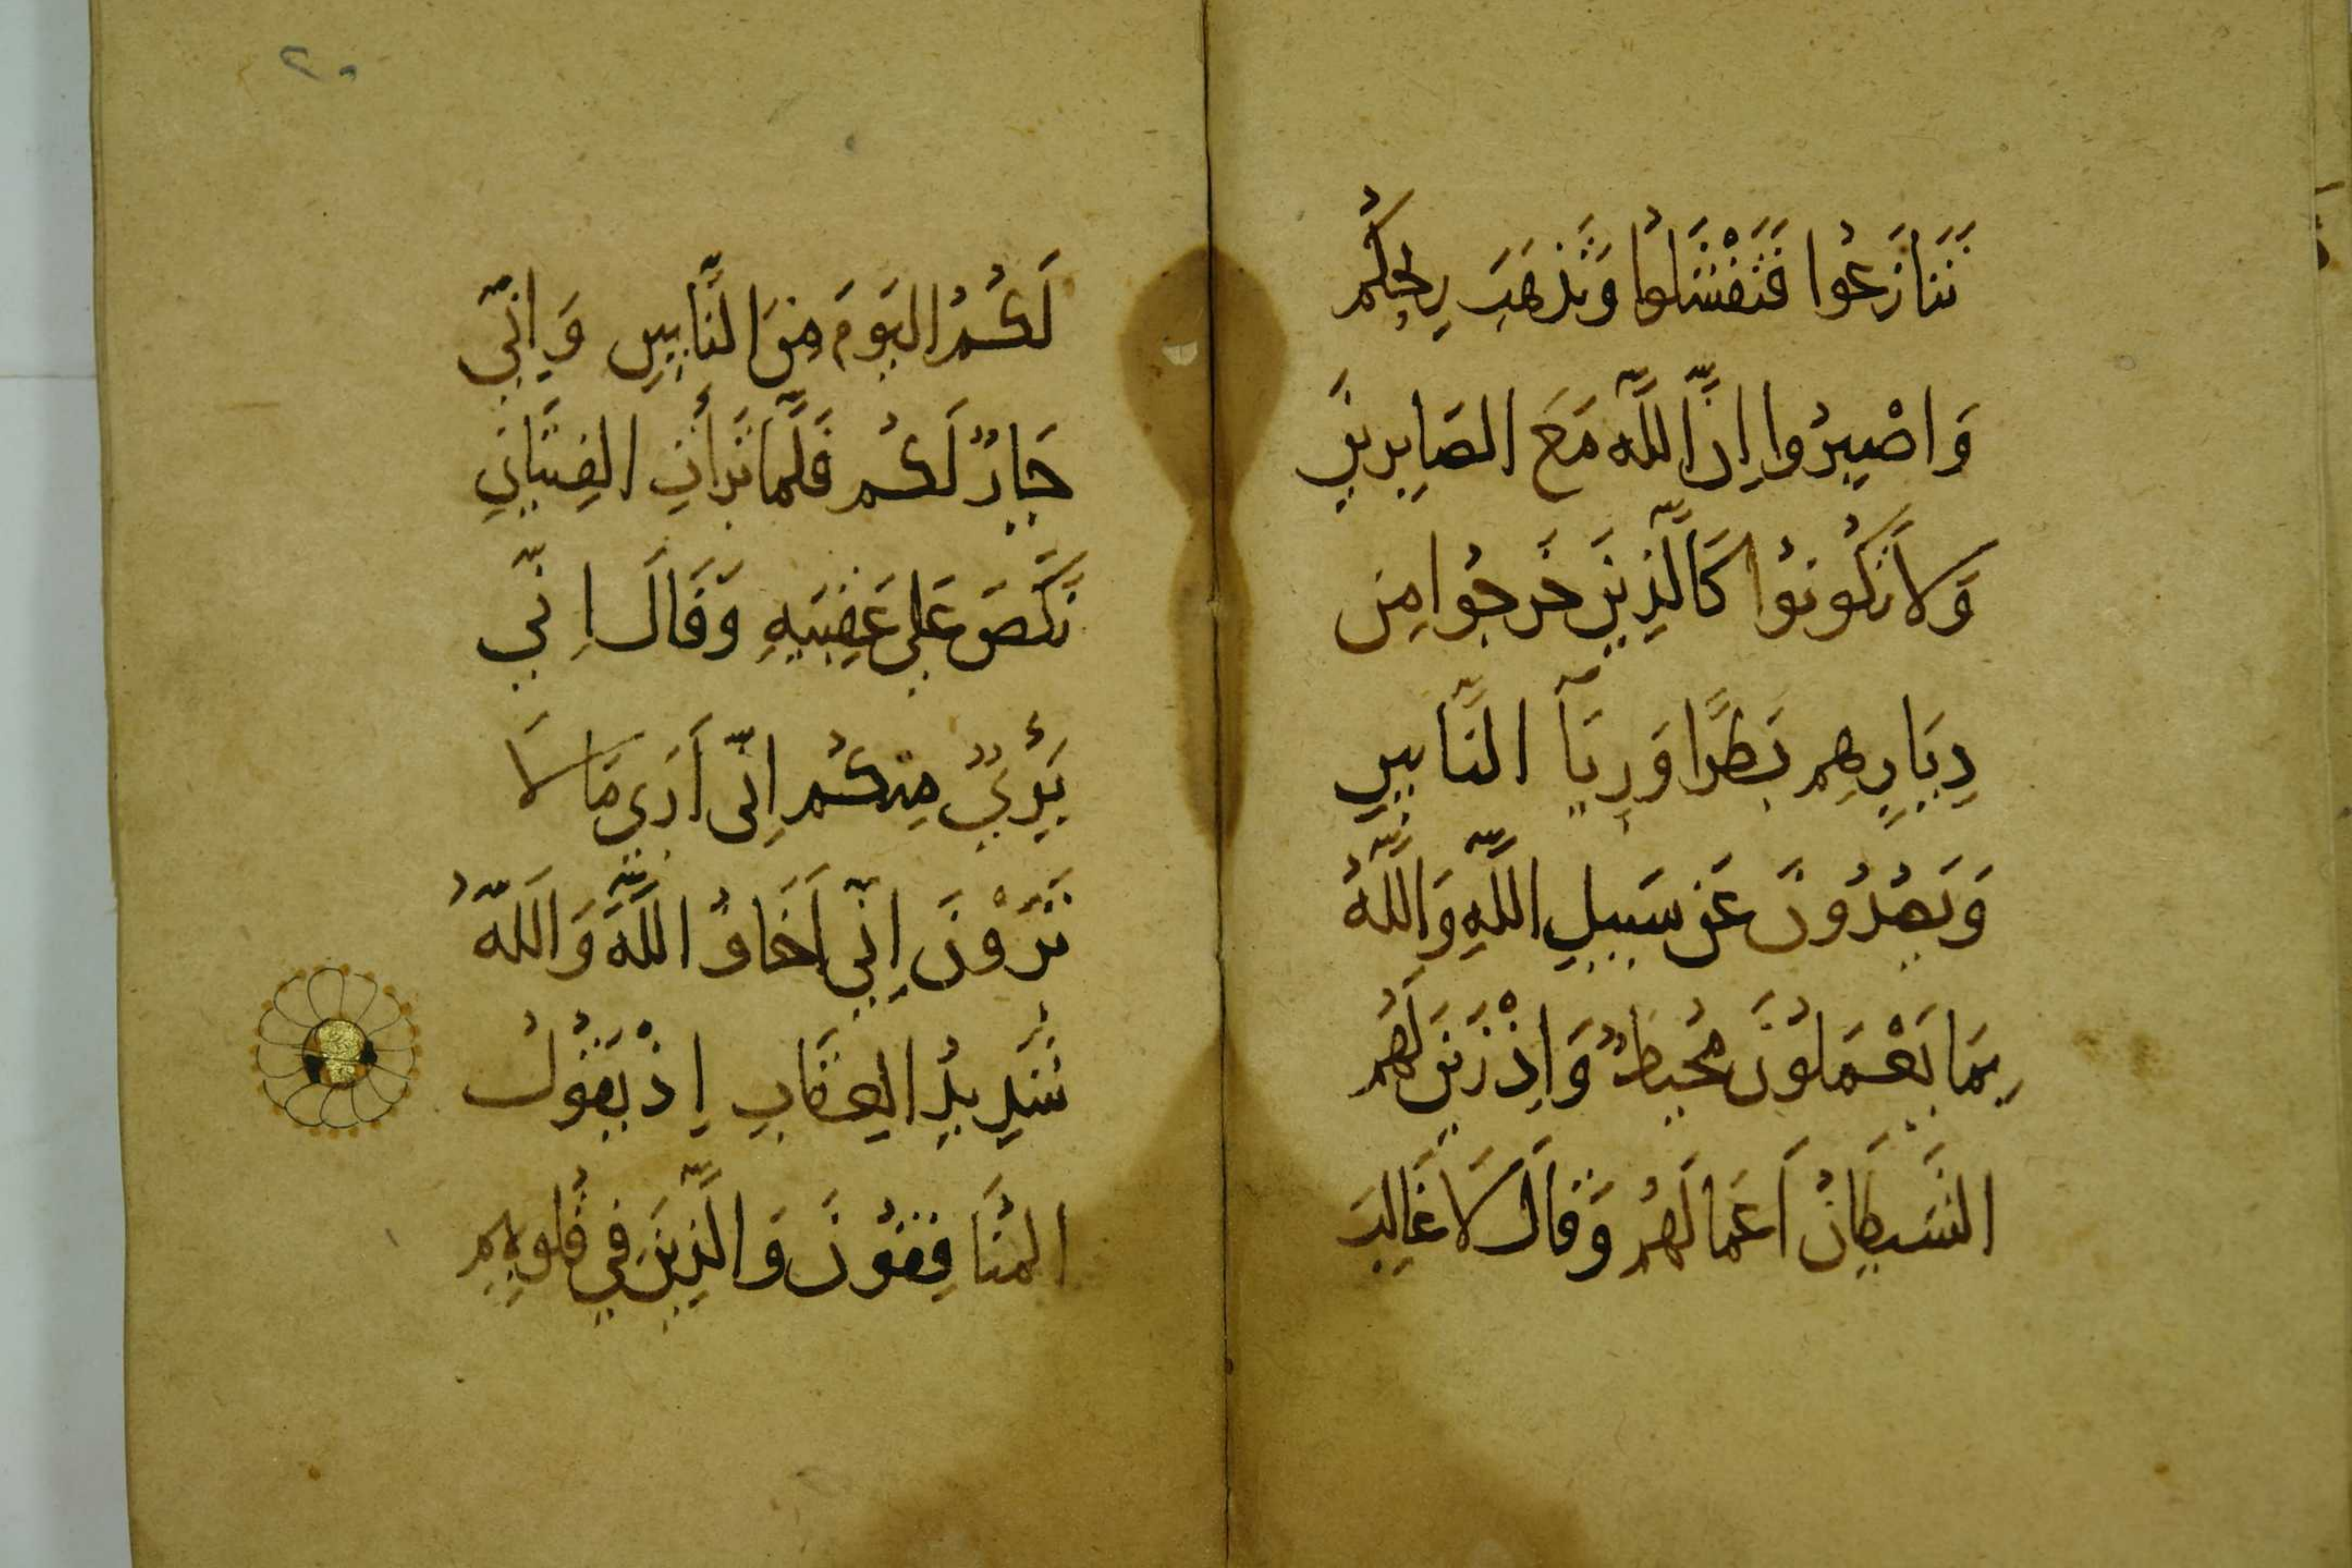 تَنَازَعُوا فَتَفْشَلُوا وَتَذهَبَ رِيحُكُم
وَاصْبِرُوا إِنَّ اللَّه مَعَ الصَابِرِينَ
وَلَا تَكُونُوا كَالَّذِينَ خَرَجُوا مِن
دِيَارِهِم بَطَرًا وَرِيَآ النَّاسِ
وَيَصُدُونَ عَن سَبِيلِ اللَّهِ وَاللَّهُ
بِمَا يَعْمَلُونَ مُحِيطٌ وَإِذْ زَيَنَ لَهُم
الشَّيطَانُ أَعمَالَهُم وَقَالَ لَا غَالِبَ
لَكُمُ اليَومَ مِنَ النَّاسِ وَإِنِّي
جَارٌ لَكُم فَلَّمَا تَرَأَتِ الفِئَتَانِ
نَكَصَ عَلى عَقِبَيهِ وَقَالَ إِنِّي
بَرِئٌ مِنكُم إِنِّى أَرَى مَا لَا
تَرَوْنَ إِنِّي أَخَافُ اللَّهَ وَاللَّهُ
شَدِيدُ العِقَابِ إِذْ يَقُولُ
المُنَافِقُونَ وَالَّذِينَ فِي قُلُوبِهِم
٢٠